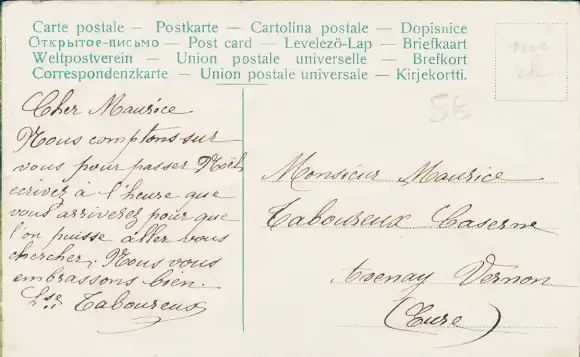 Carte postale — Postkarte — Cartolina postale — Dopisnice
Открытое-письмо — Post card — Levelező-Lap — Briefkaart
Weltpostverein — Union postale universelle — Brefkort
Correspondenzkarte — Union postale universale — Kirjekortti.
5E
Cher Maurice
Nous comptons sur
vous pour passer Noël,
écrivez à l'heure que
vous arriverez pour que
l'on puisse aller vous
chercher. Nous vous
embrassons bien.
Lse Taboureux
Monsieur Maurice
Taboureux Caserne
Avenay Vernon
(Eure)